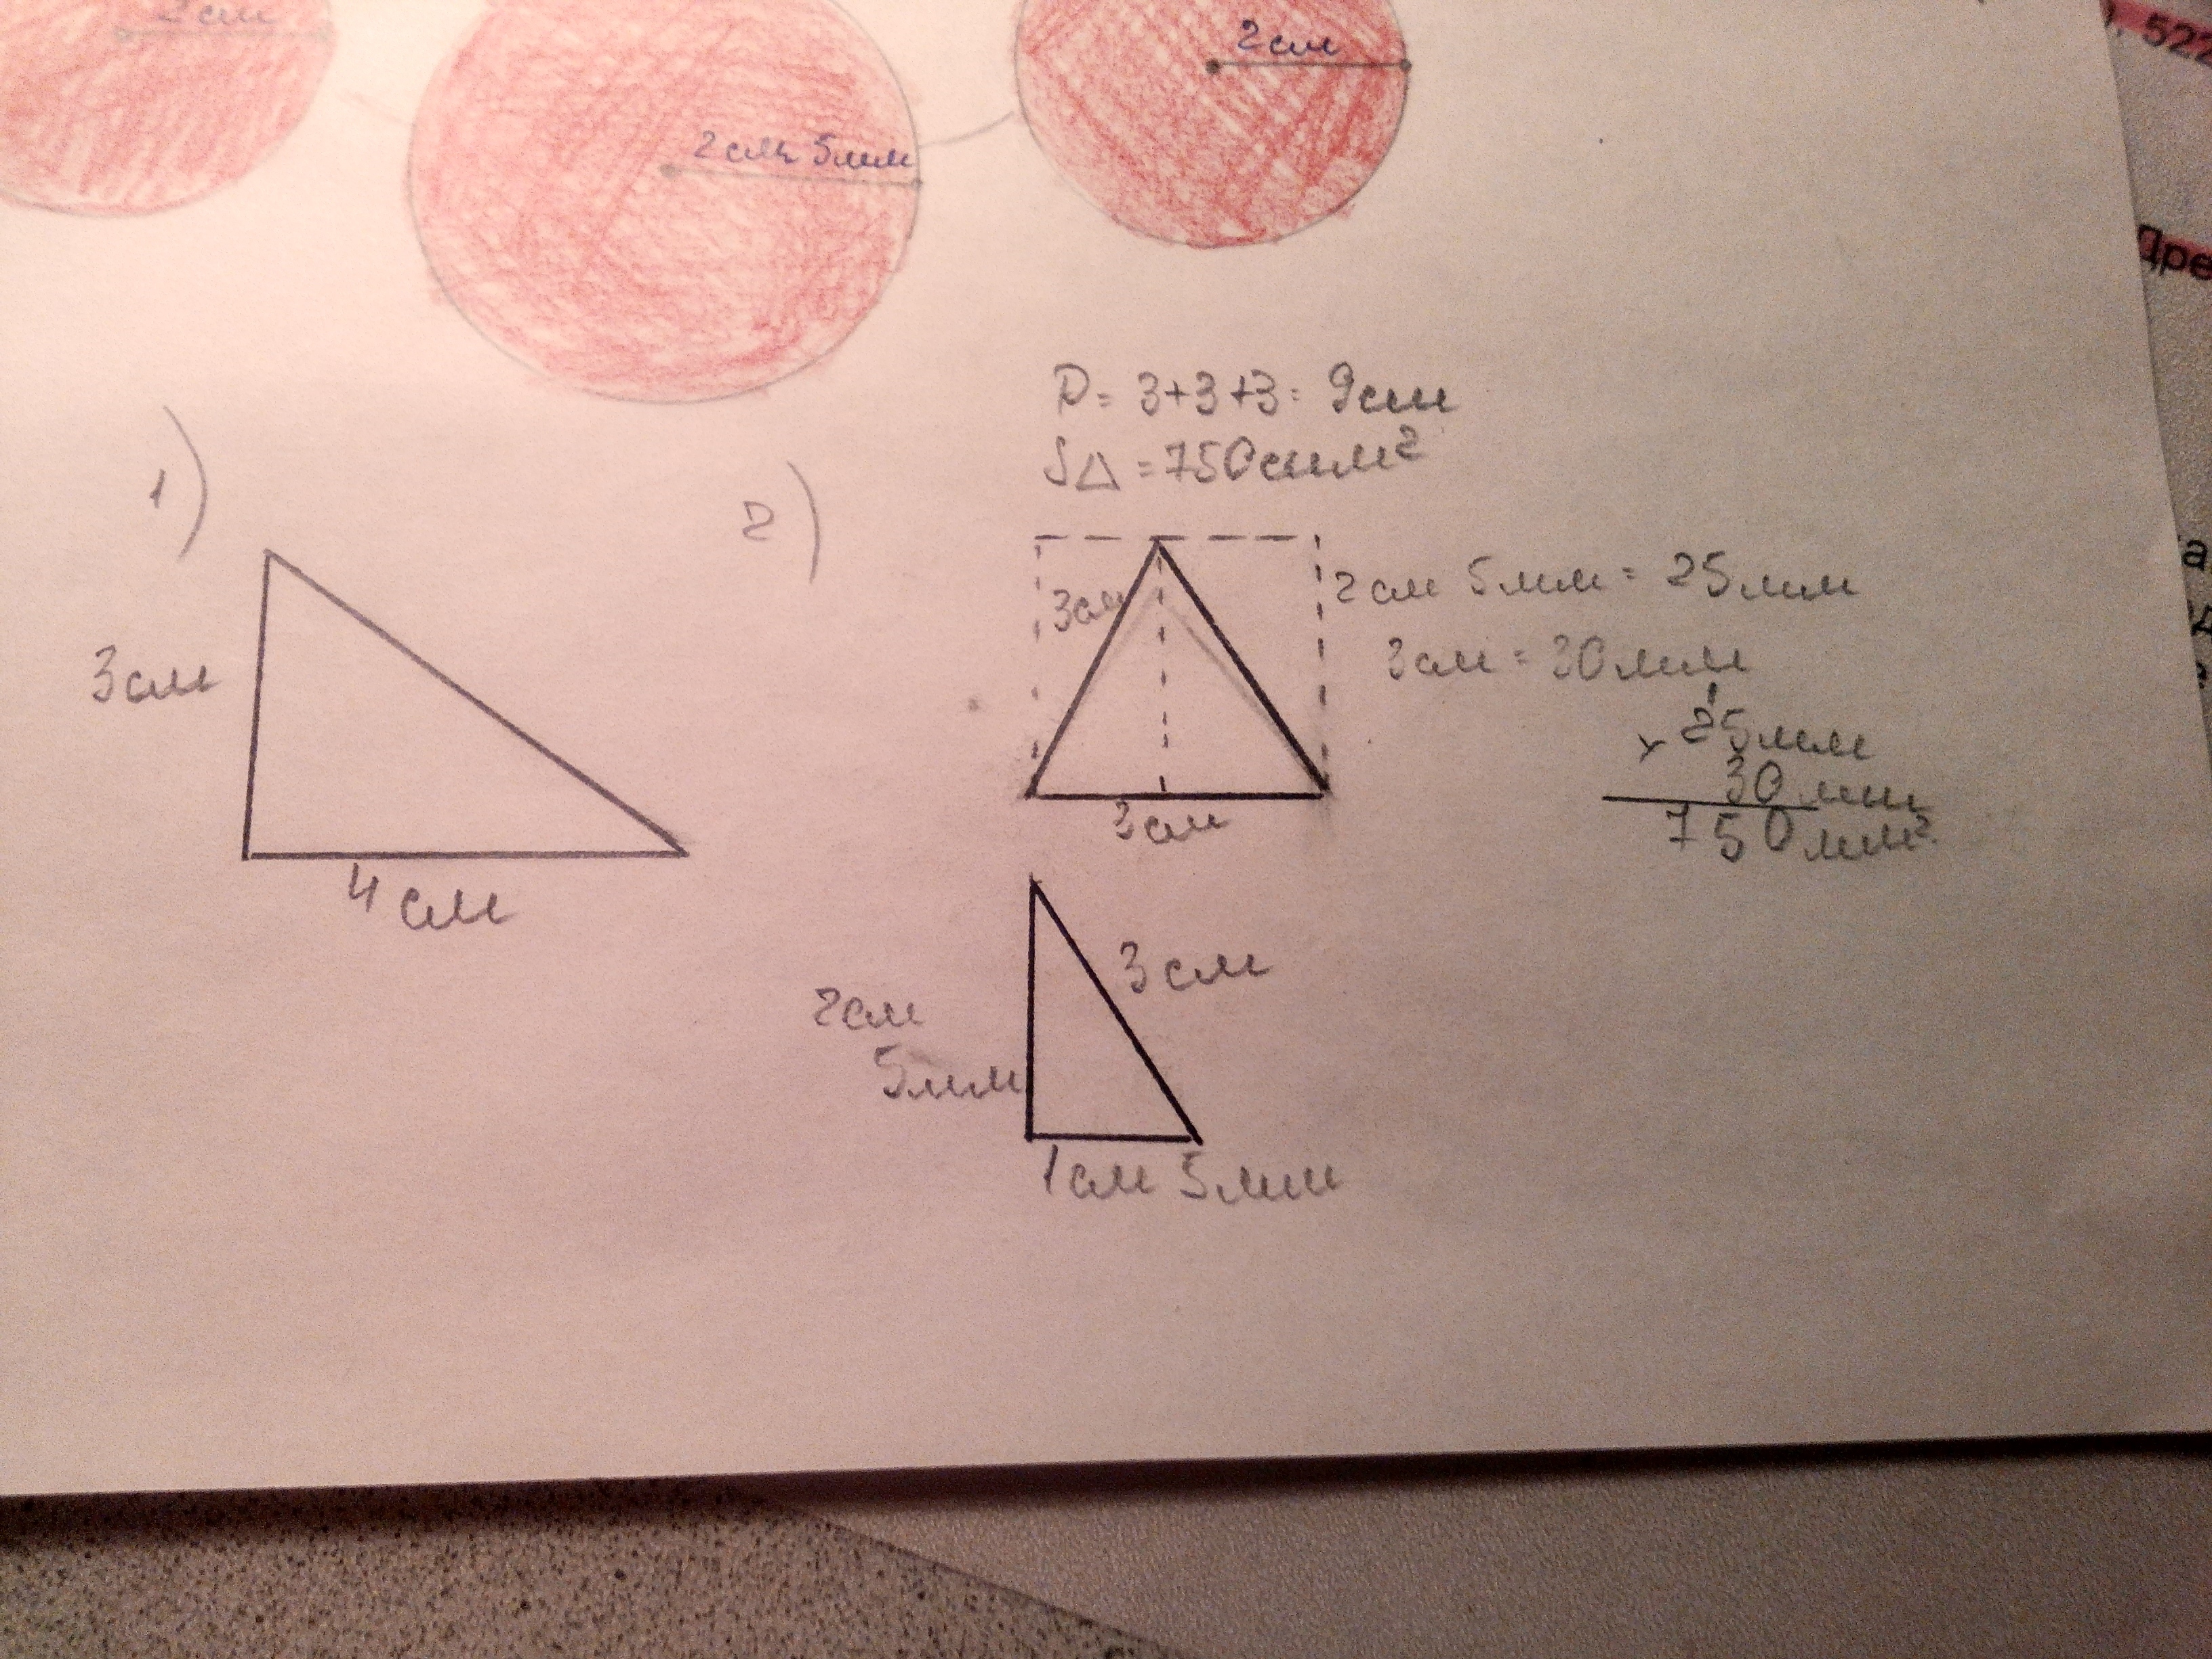 2см
2см 5мм
2см
. 522
Дре
P = 3+3+3 = 9см
S△ = 750смм²
1)
2)
3см
2см 5мм = 25мм
3см
3см = 30мм
1
× 25мм
30мм
750мм²
3см
4см
3см
2см
5мм
1см 5мм